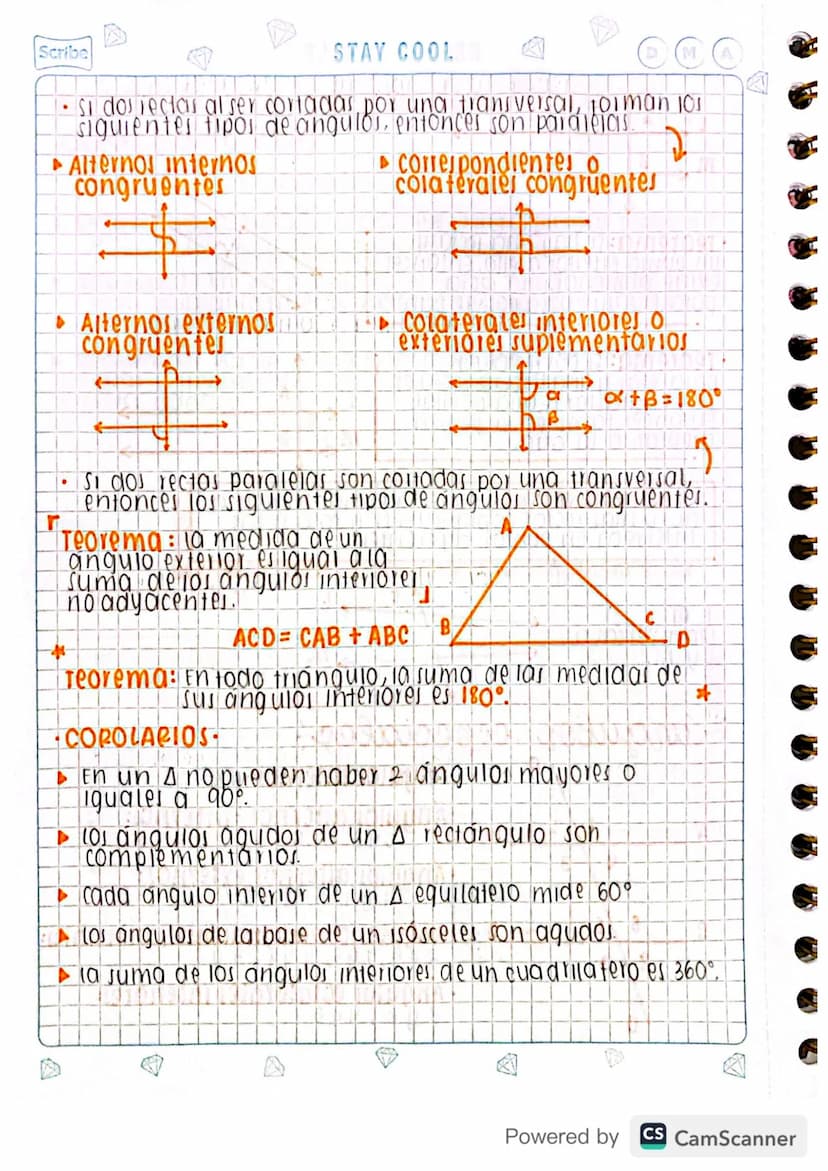 Scribe
STAY COOL
D M A
• Si dos rectas al ser cortadas por una transversal, forman los
siguientes tipos de ángulos, entonces son paralelas.
▸ Alternos internos
congruentes
▸ Correspondientes o
colaterales congruentes
▸ Alternos externos
congruentes
▸ Colaterales interiores o
exteriores suplementarios
α
β
α + β = 180°
• Si dos rectas paralelas son cortadas por una transversal,
entonces los siguientes tipos de ángulos son congruentes.
Teorema: la medida de un
ángulo exterior es igual a la
suma de los ángulos interiores
no adyacentes.
A
B
C
D
ACD = CAB + ABC
Teorema: En todo triángulo, la suma de las medidas de
sus ángulos interiores es 180°.
• COROLARIOS •
▸ En un Δ no pueden haber 2 ángulos mayores o
iguales a 90°.
▸ los ángulos agudos de un Δ rectángulo son
complementarios.
▸ Cada ángulo interior de un Δ equilatero mide 60°
▸ los ángulos de la base de un isósceles son agudos.
▸ la suma de los ángulos interiores de un cuadrilatero es 360°.
Powered by CS CamScanner